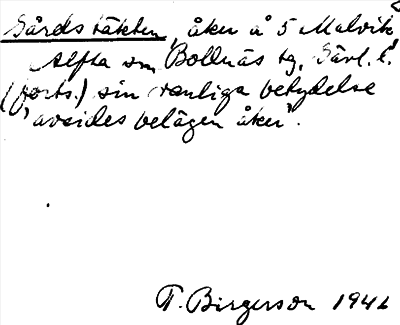 Gårdstäkten, åker å 5 Malvik,
Alfta sn, Bollnäs tg, Gävl. l.
(forts.) sin vanliga betydelse
"avsides belägen åker".
T. Birgerson 1941